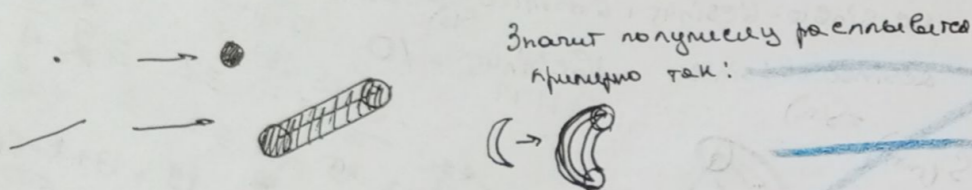 Значит полумесяц расплывется
примерно так: